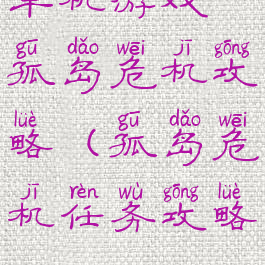 单机游戏
gū dǎo wēi jī gōng
孤岛危机攻
lüè gū dǎo wēi
略（孤岛危
jī rèn wù gōng lüè
机任务攻略